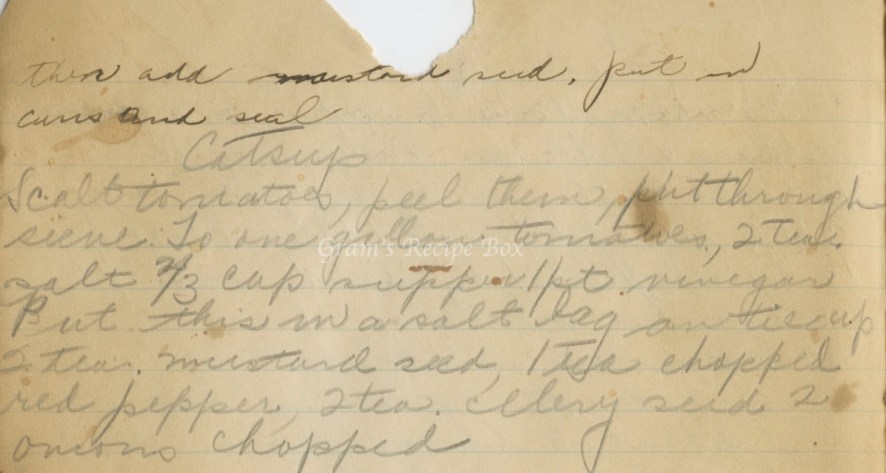 then add mustard seed, put in
cans and seal
Catsup
Scalt tomatoes, peel them, put through
sieve. To one gallon tomatoes, 2 tea.
Gram's Recipe Box
salt 2/3 cup supper 1 pt. vinegar
Put this in a salt bag an tie up
2 tea. mustard seed, 1 tea chopped
red pepper, 2 tea. cellery seed 2
onions chopped